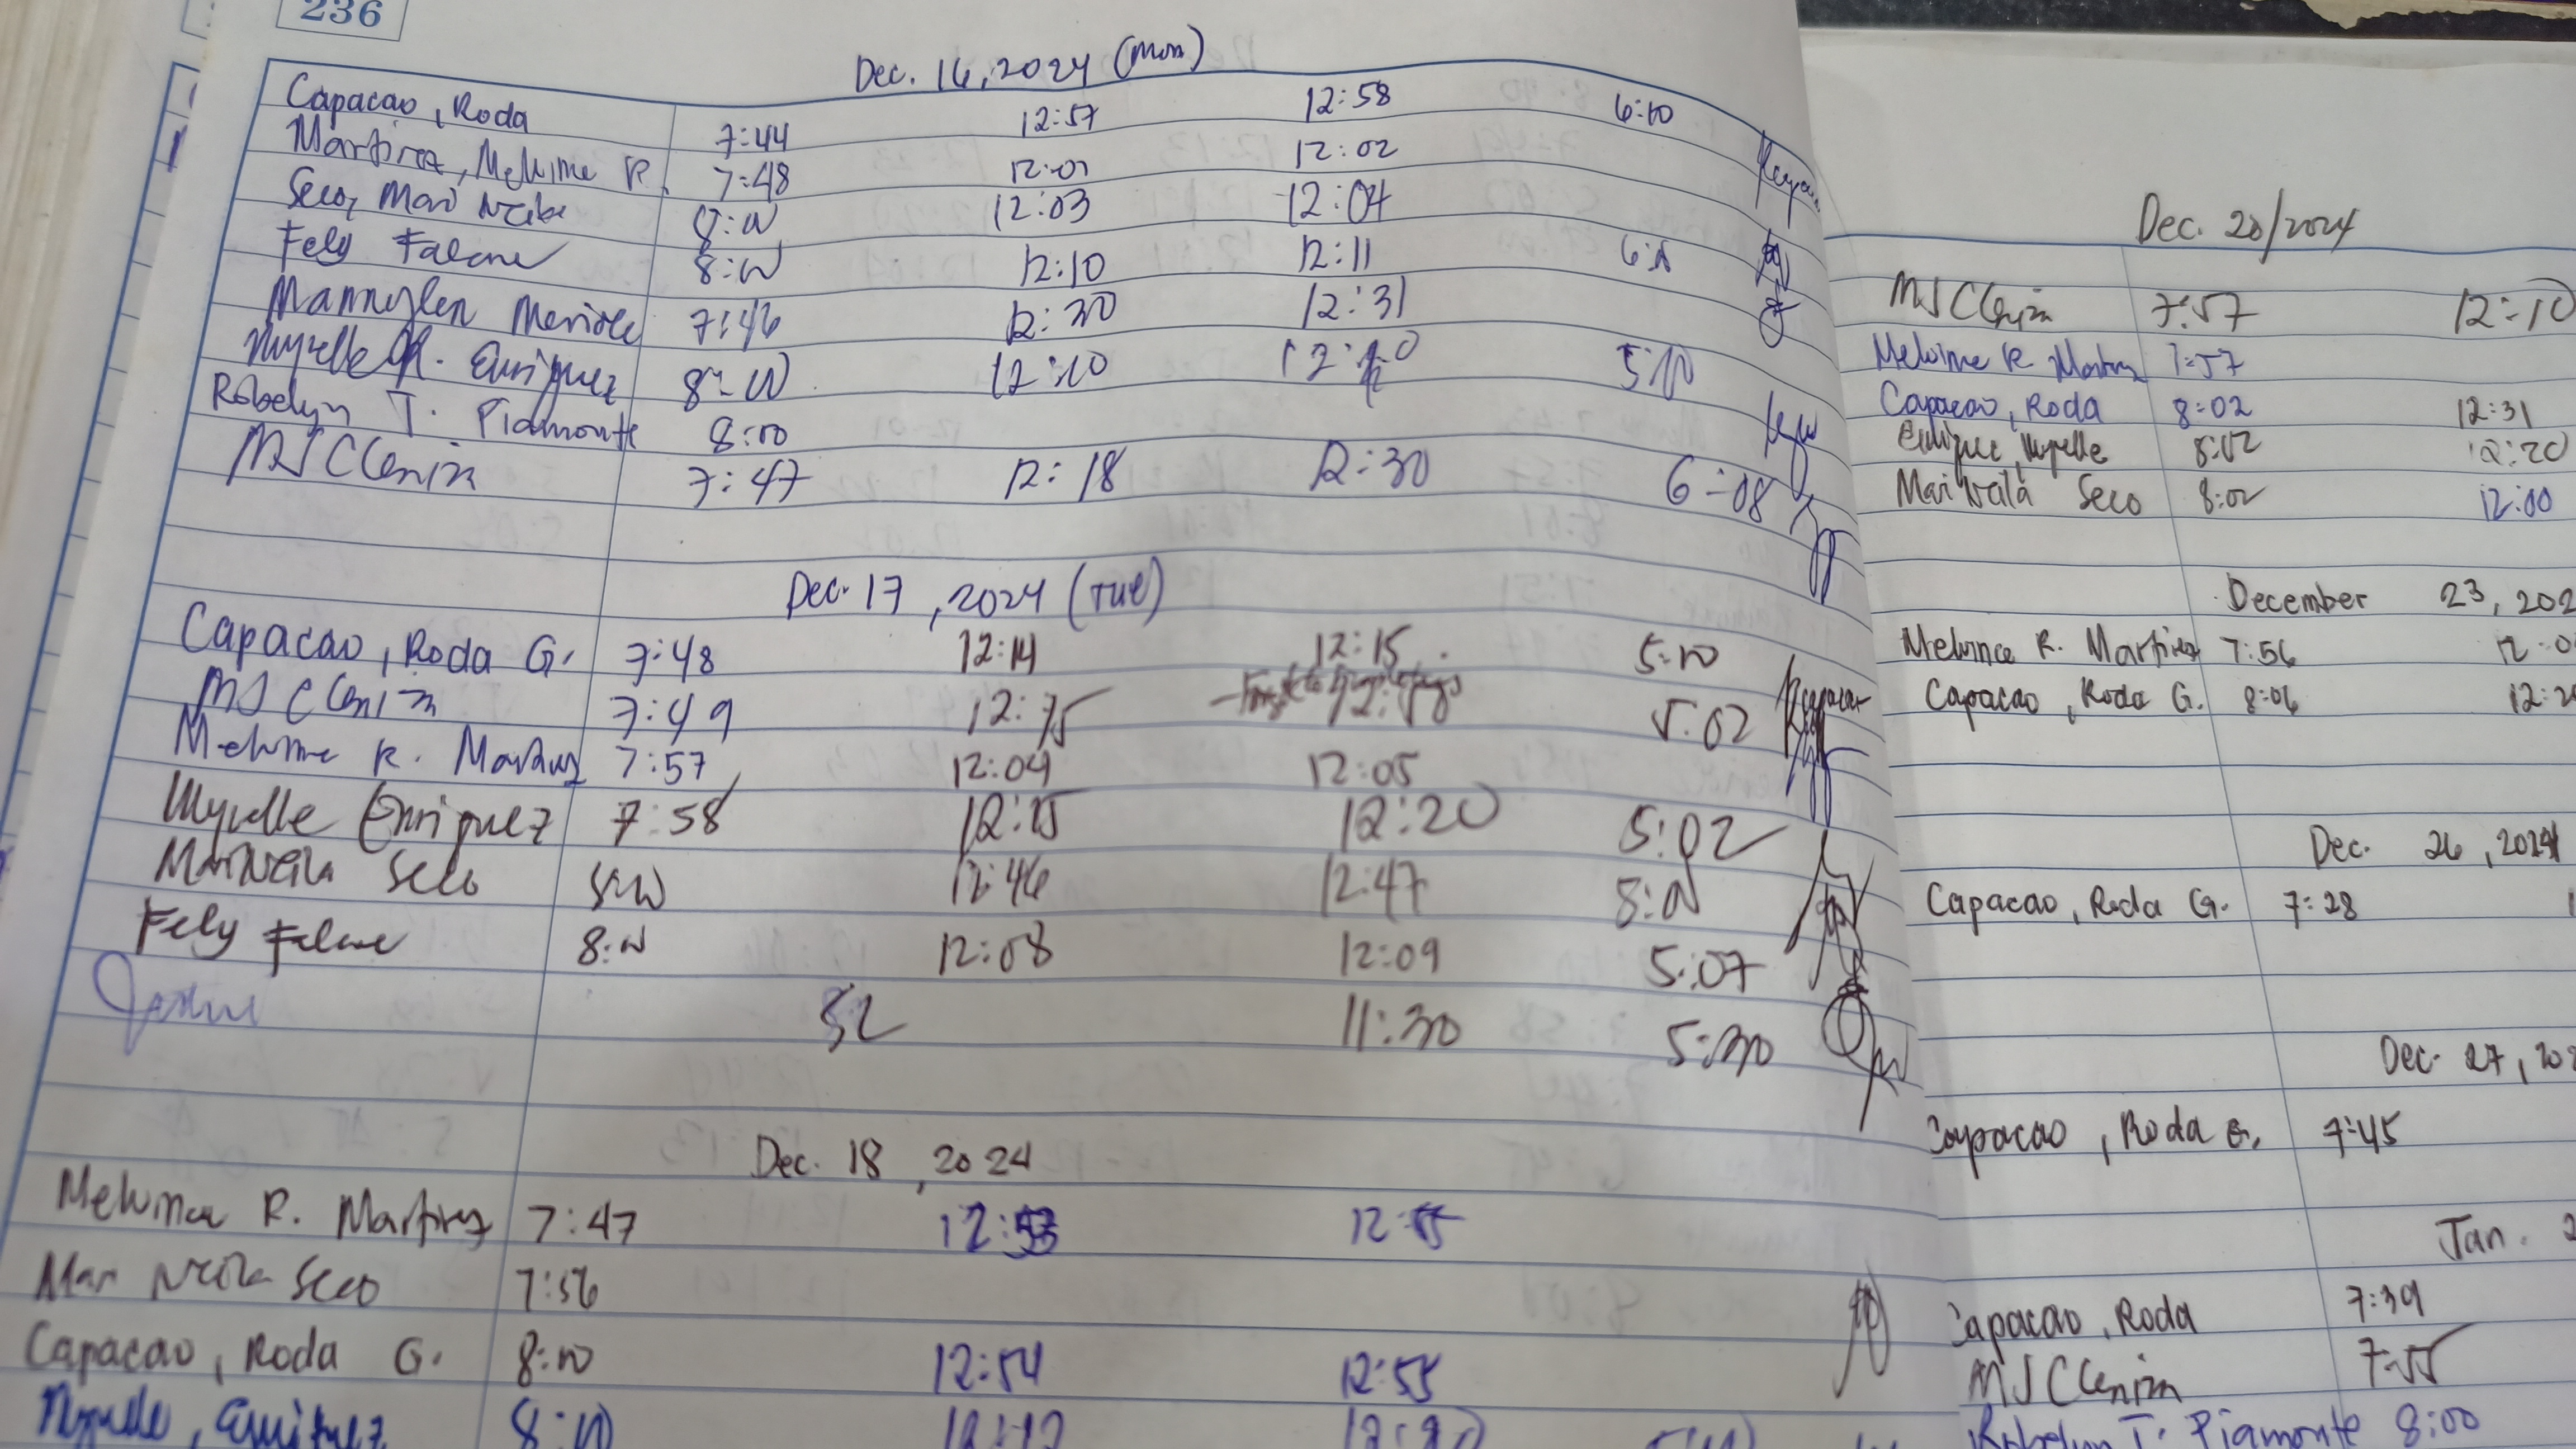 236
Dec. 16, 2024 (Mon)
Capacao, Roda 7:44 12:57 12:58 6:10
Martirez, Melvina R. 7:48 12:01 12:02
Seco, Mari 12:03 12:04
Fely 12:10 12:11
7:46 12:30 12:31
Myrelle R. Enriquez 12:10 5:10
Robelyn T. Piamonte 8:00
MJ C Cleniza 7:47 12:18 12:30 6:08
Dec. 17, 2024 (Tue)
Capacao, Roda G. 7:48 12:14 12:15 5:10
MJ C Cleniza 7:49 5:02
Melvina R. Martirez 7:57 12:04 12:05
Myrelle Enriquez 7:58 12:15 12:20 5:02
Seco 12:46 12:47
Fely 12:08 12:09 5:07
SL 11:30 5:30
Dec. 18, 2024
Melvina R. Martirez 7:47
Seco 7:56
Capacao, Roda G. 8:10 12:54 12:55
Myrelle, Enriquez 8:10
Dec. 20/2024
MJ C Cleniza 7:57 12:10
Melvina R. Martirez 7:57
Capacao, Roda 8:02 12:31
Enriquez, Myrelle 8:02 12:20
Seco 8:02 12:00
December 23, 202
Melvina R. Martirez 7:56 12:0
Capacao, Roda G. 8:06 12:2
Dec. 26, 2024
Capacao, Roda G. 7:28 1
Dec. 27, 20
Capacao, Roda G. 7:45
Jan. 2
Capacao, Roda 7:39
MJ C Cleniza 7:55
Robelyn T. Piamonte 8:00